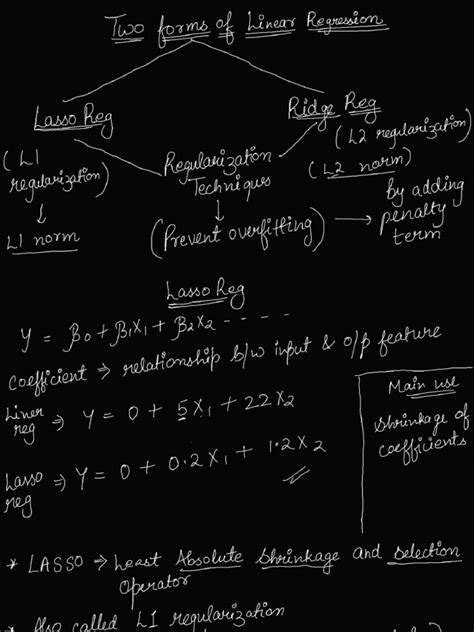 Two forms of Linear Regression
Lasso Reg
Ridge Reg
(L1
regularization)
↓
L1 norm
Regularization
Techniques
↓
(Prevent overfitting)
(L2 regularization)
(L2 norm)
→ by adding
penalty
term
Lasso Reg
Y = β0 + β1X1 + β2X2 - - - -
Coefficient → relationship b/w input & o/p feature
Liner
reg ⇒ Y = 0 + 5X1 + 22X2
Lasso
reg ⇒ Y = 0 + 0.2X1 + 1.2X2
Main use
Shrinkage of
coefficients
* LASSO ⇒ Least Absolute Shrinkage and Selection
Operator
* Also called L1 regularization